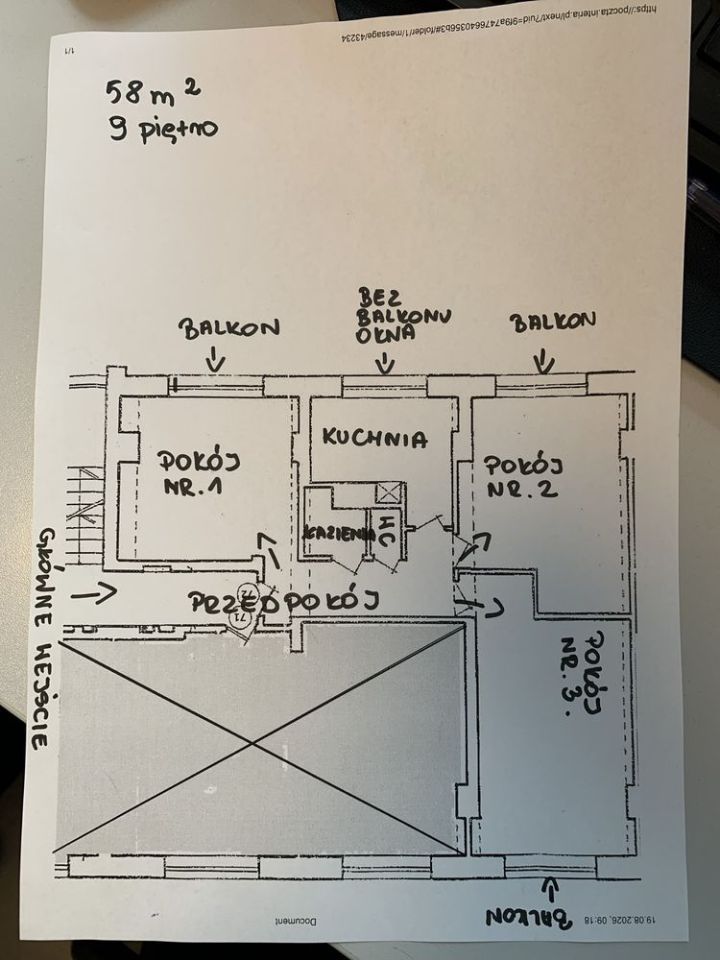 https://poczta.interia.pl/next/?uid=9f9a7476640356b3#/folder/1/message/43234
1/1
58 m²
9 piętro
BALKON
BEZ
BALKONU
OKNA
BALKON
KUCHNIA
POKÓJ
NR. 1
POKÓJ
NR. 2
ŁAZIENKA
WC
PRZEDPOKÓJ
72
71
GŁÓWNE WEJŚCIE
POKÓJ
NR. 3.
BALKON
Document
19.08.2026, 09:18